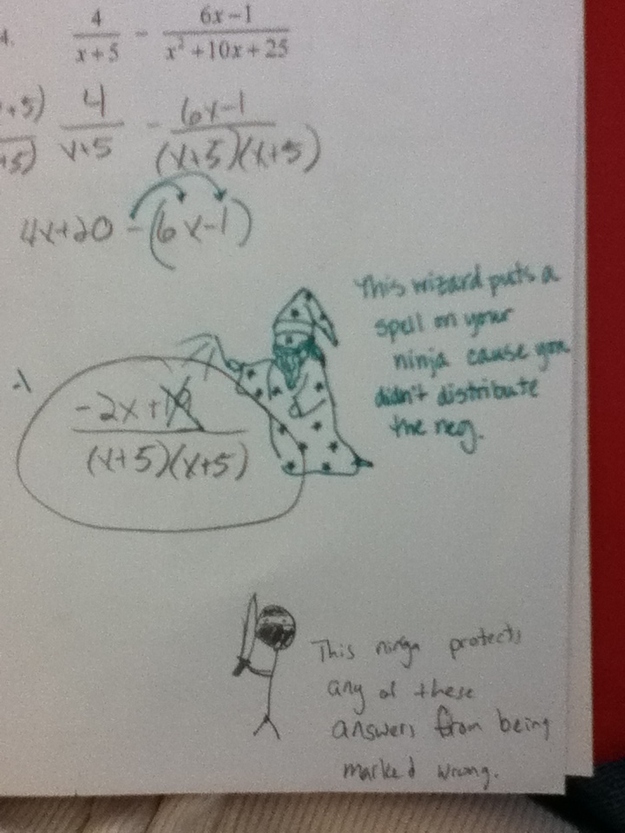 4.
4/(x+5) - (6x-1)/(x²+10x+25)
+5)/+5) 4/(x+5) - (6x-1)/((x+5)(x+5))
4x+20 -(6x-1)
This wizard puts a
spell on your
ninja cause you
didn't distribute
the neg.
-1
(-2x+19)/((x+5)(x+5))
This ninja protects
any of these
answers from being
marked wrong.